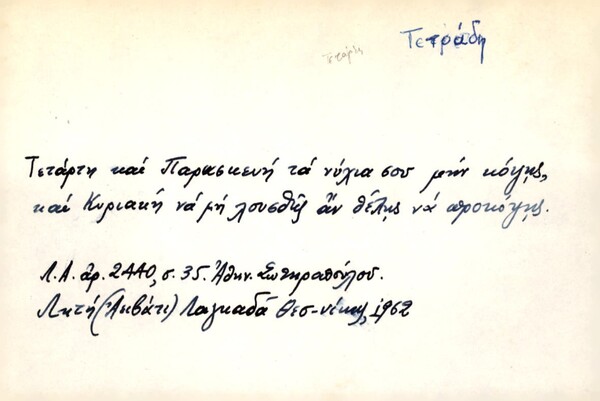 Τετράδη
Τετάρτη
Τετάρτη καί Παρασκευή τά νύχια σου μήν κόψης,
καί Κυριακή νά μή λουσθῆς ἄν θέλης νά προκόψης.
Λ.Α. ἀρ. 2440, σ. 35. Ἀθην. Σωτηροπούλου.
Λητή (Ἀϊβάτι) Λαγκαδᾶ Θεσ-νίκης, 1962